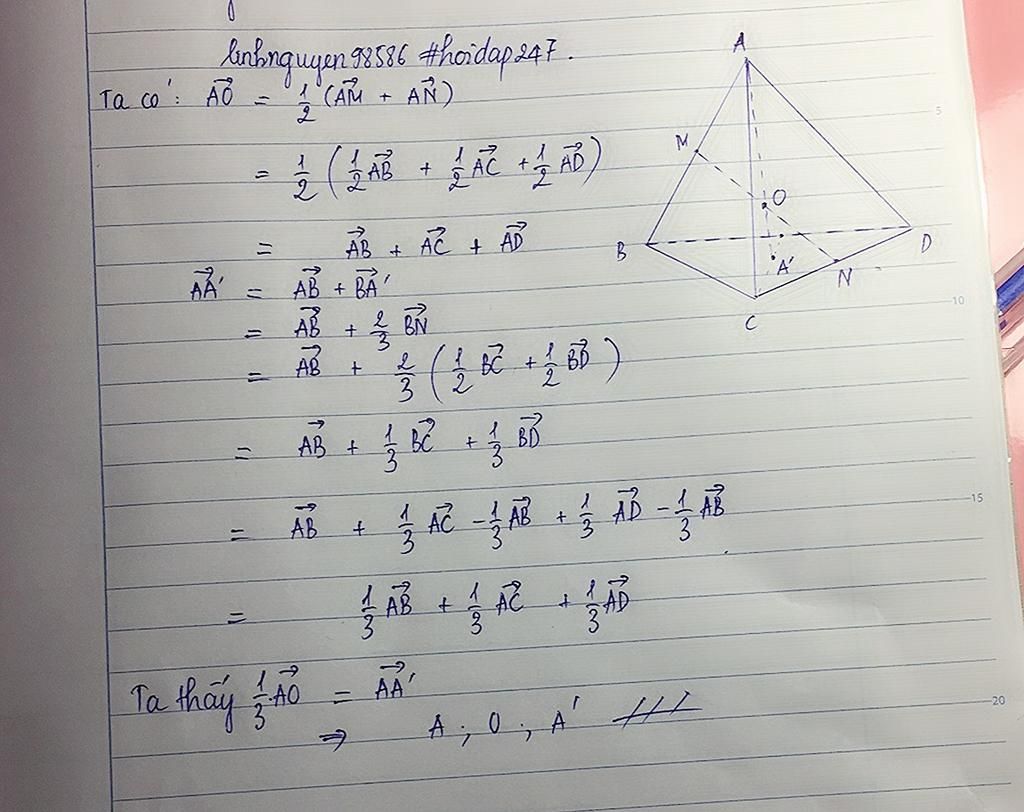 linhnguyen98586 #hoidap247.
Ta có: AO⃗ = 1/2 (AM⃗ + AN⃗)
= 1/2 (1/2 AB⃗ + 1/2 AC⃗ + 1/2 AD⃗)
= AB⃗ + AC⃗ + AD⃗
AA'⃗ = AB⃗ + BA'⃗
= AB⃗ + 2/3 BN⃗
= AB⃗ + 2/3 (1/2 BC⃗ + 1/2 BD⃗)
= AB⃗ + 1/3 BC⃗ + 1/3 BD⃗
= AB⃗ + 1/3 AC⃗ - 1/3 AB⃗ + 1/3 AD⃗ - 1/3 AB⃗
= 1/3 AB⃗ + 1/3 AC⃗ + 1/3 AD⃗
Ta thấy 1/3 AO⃗ = AA'⃗
⇒ A ; O ; A'
A
M
O
B
D
A'
N
C
5
10
15
20